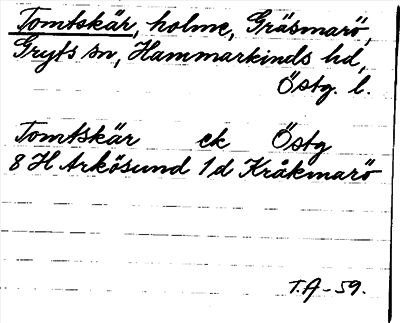 Tomtskär, holme, Gräsmarö,
Gryts sn, Hammarkinds hd,
Östg. l.
Tomtskär ek Östg
8 H Arkösund 1 d Kråkmarö
T.A-59.